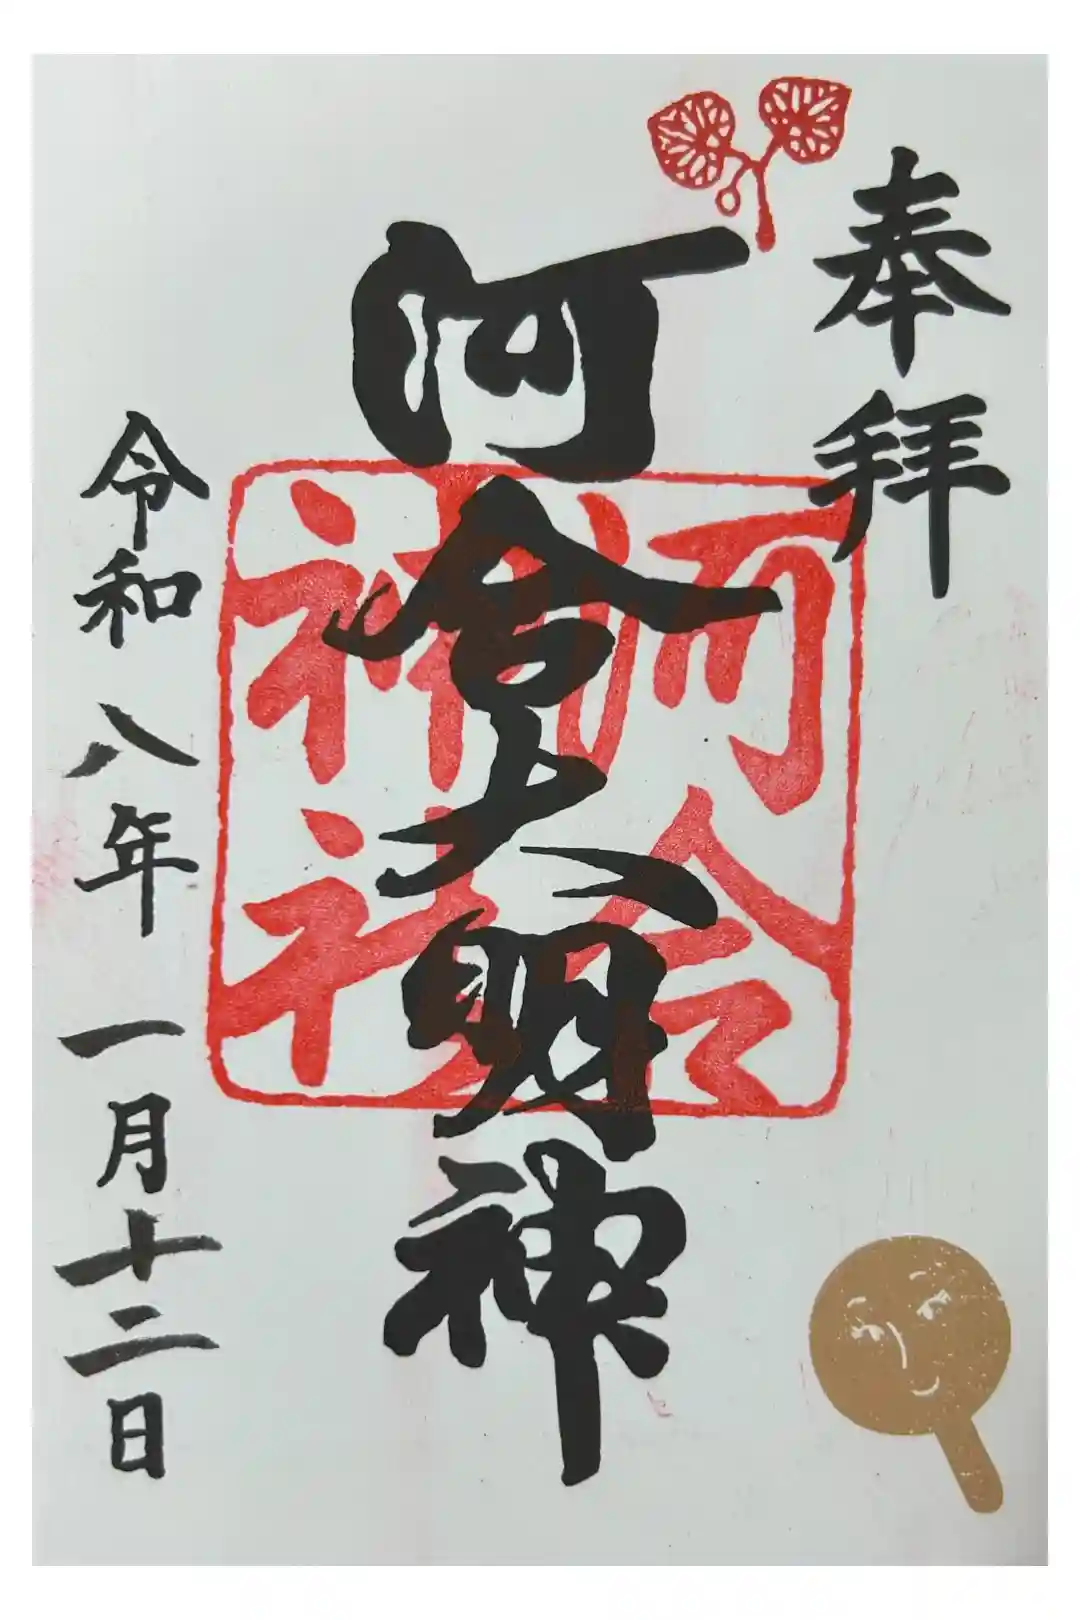 奉拝
河合大明神
河合
神社
令和八年一月十二日